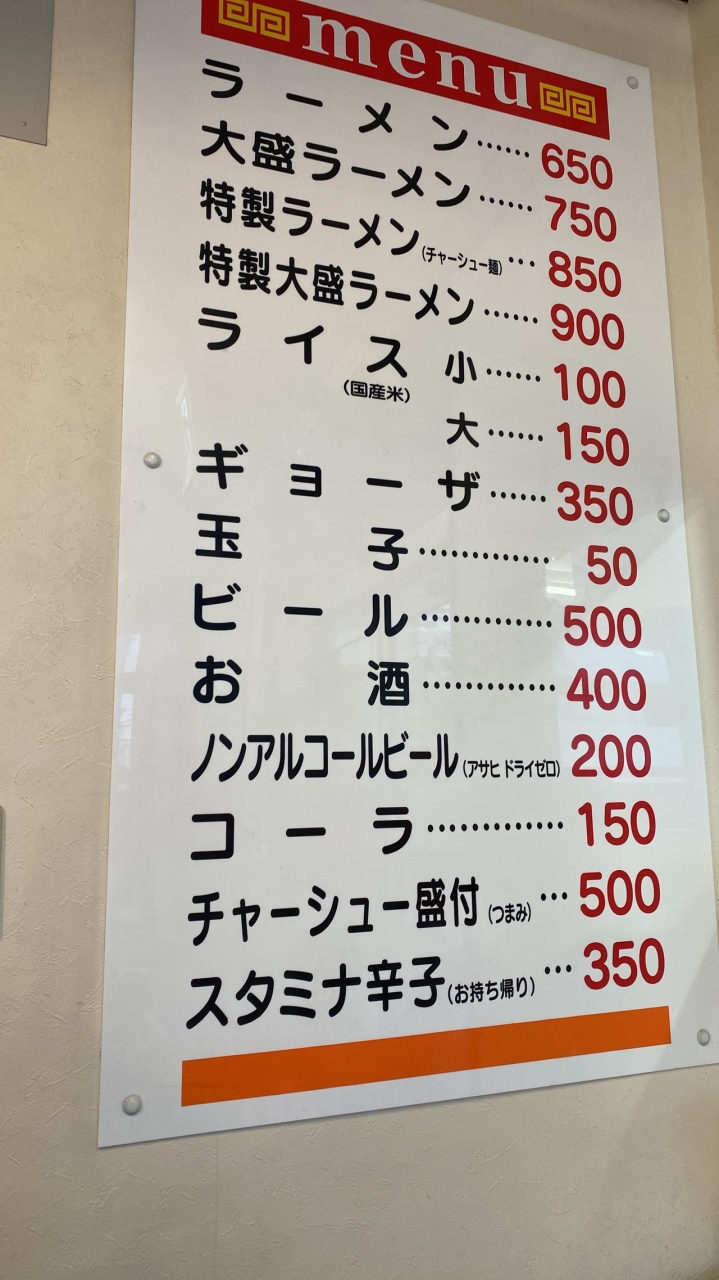 menu
ラーメン……650
大盛ラーメン……750
特製ラーメン(チャーシュー麺)…850
特製大盛ラーメン……900
ライス 小……100
(国産米)
大……150
ギョーザ……350
玉子…………50
ビール…………500
お酒…………400
ノンアルコールビール(アサヒ ドライゼロ)200
コーラ…………150
チャーシュー盛付(つまみ)…500
スタミナ辛子(お持ち帰り)…350